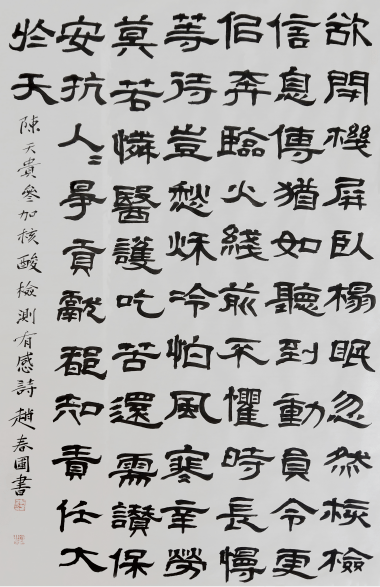 欲閉機屏臥榻眠忽然核檢
信息傳猶如聽到動員令更
佀奔臨火綫前不懼時長慢
等待豈愁秌冷怕風寒辛勞
莫若憐醫護吃苦還需讚保
安抗人〻爭貢獻都知責任大
於天
陳天貴參加核酸檢測有感詩 趙春圖書